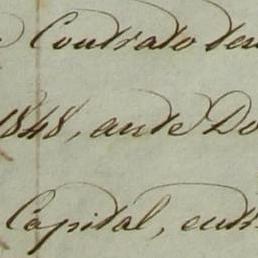 Contrato
1848, ante Do
Capital, entr